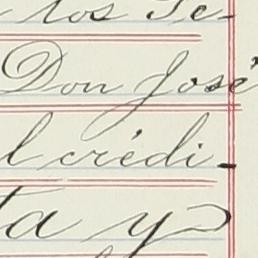 los Se-
Don José
l crédi-
ta y